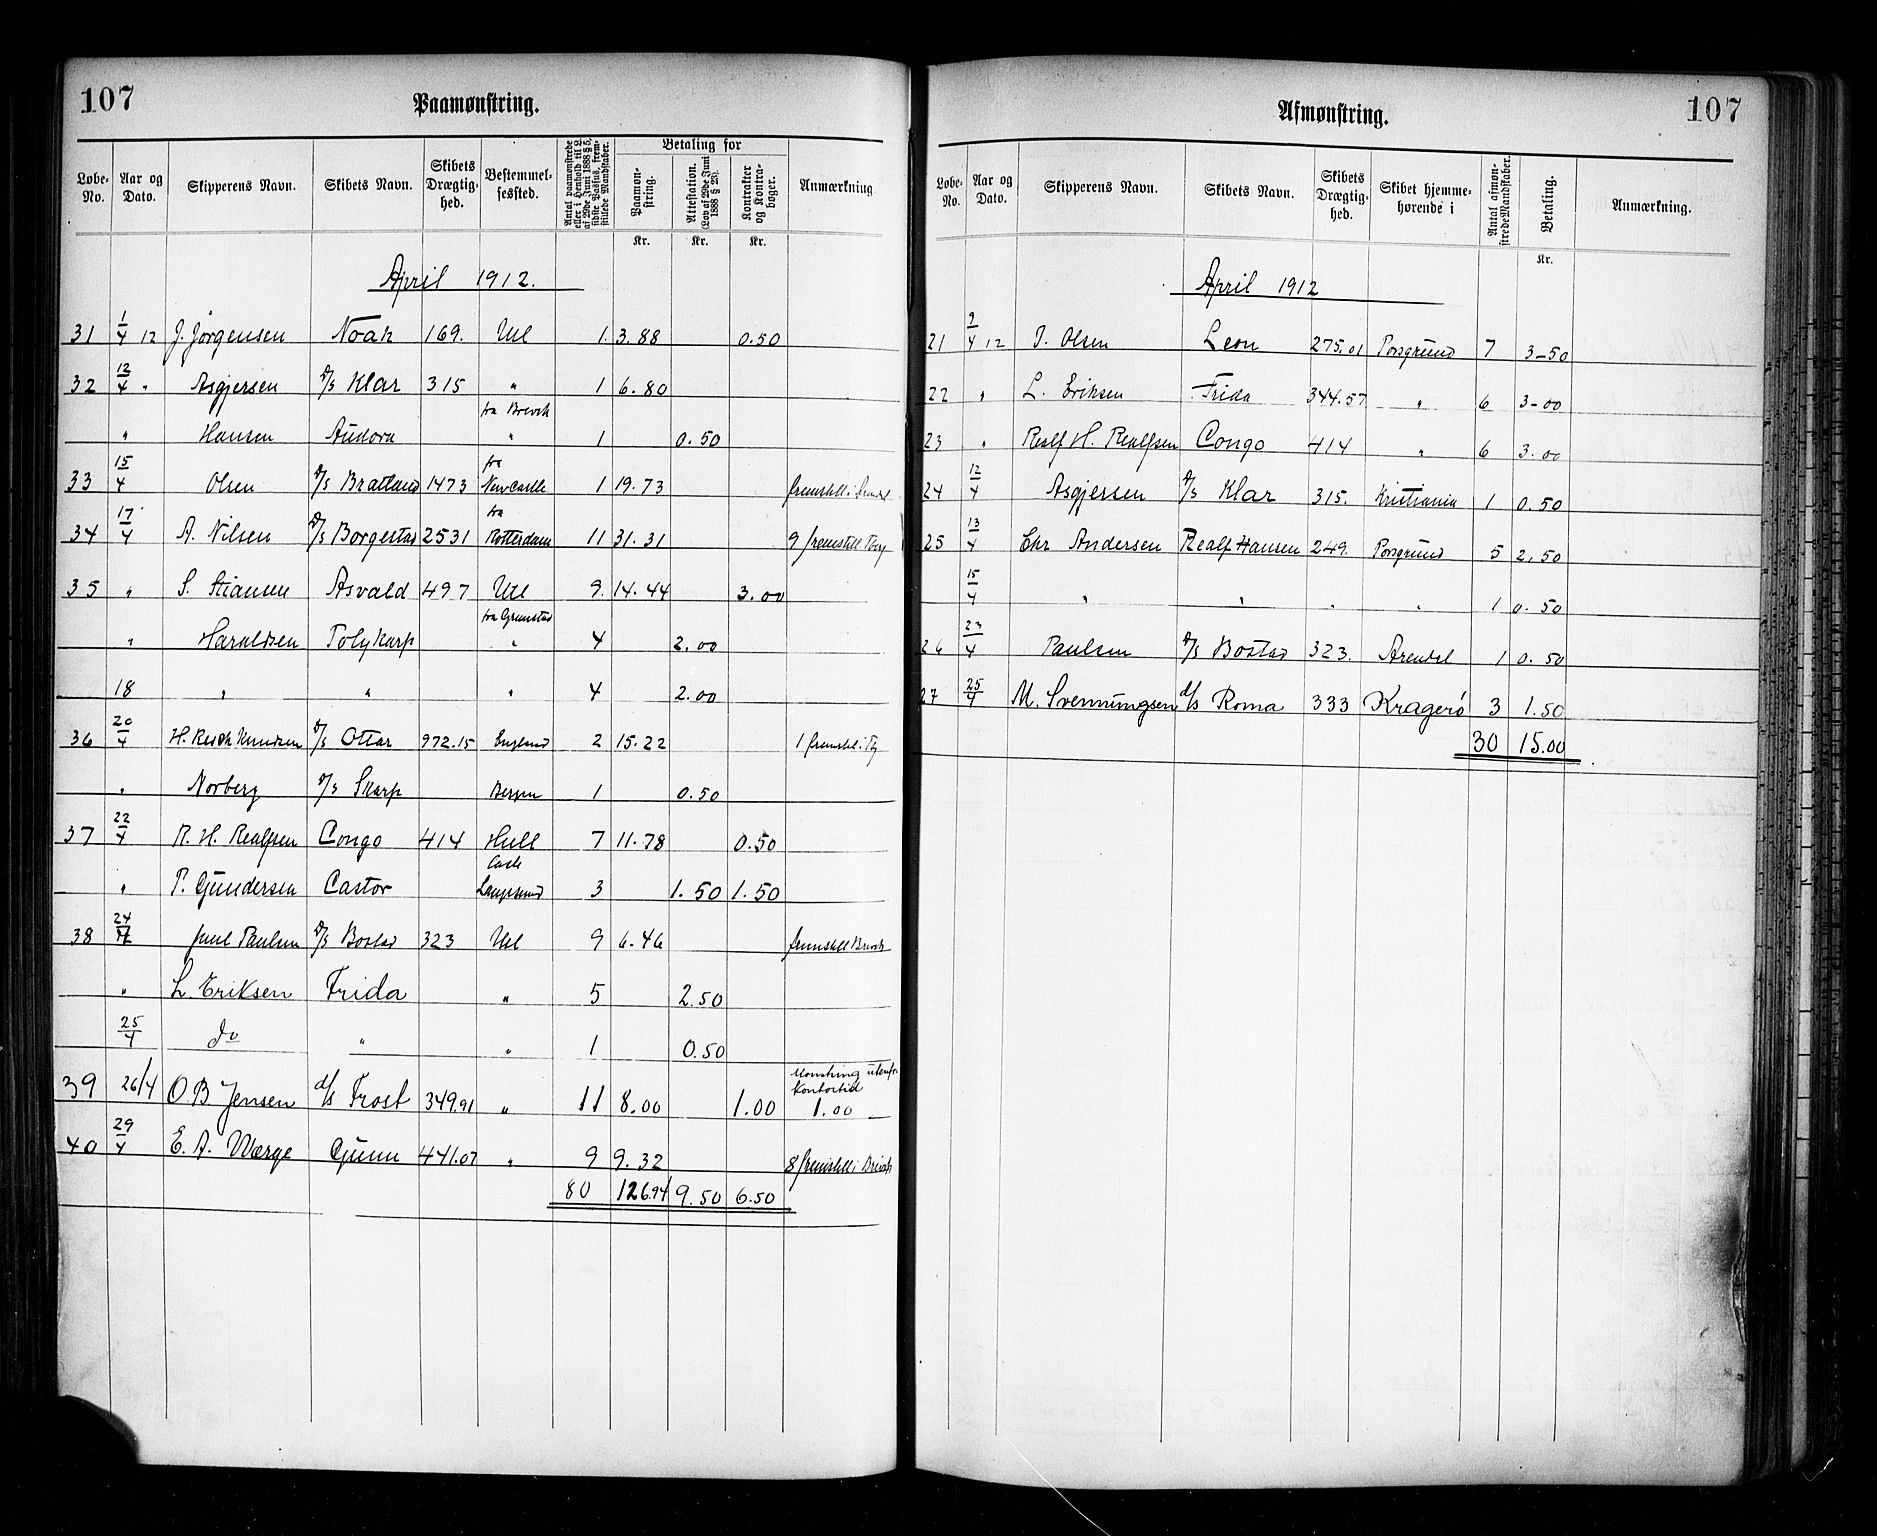 107
Paamønstring.
Løbe-No. | Aar og Dato. | Skipperens Navn. | Skibets Navn. | Skibets Drægtig-hed. | Bestemmel-sessted. | Antal paamønstrede eller i Henhold til L. af 29de Juni 1888 § 5, sidste Passus, frem-stillede Mandskaber. | Betaling for | Paamøn-string. Kr. | Attestation. (Lov af 29de Juni 1888 § 25). Kr. | Kontrakter og Kontra-bøger. Kr. | Anmærkning
April 1912.
31 | 1/4 12 | J. Jørgensen | Noah | 169. | Utl | 1. | 3.88 | | 0.50
32 | 12/4 " | Asgjersen | D/s Klar | 315 | " | 1 | 6.80
" | Hansen | Audora | | fra Brevik " | 1 | | 0.50
33 | 15/4 | Olsen | D/s Bratland | 1473 | fra Newcastle | 1 | 19.73 | | | fremstill i
34 | 17/4 | A. Nilsen | D/s Borgestad | 2531 | fra Rotterdam | 11 | 31.31 | | | 9 fremstill
35 | " | S. Stiansen | Asvald | 497 | Utl | 9. | 14.44 | | 3.00
" | Haraldsen | Polykarp | | fra Grimstad " | 4 | | 2.00
18 | " | " | | " | 4 | | 2.00
36 | 20/4 | H. Resch Knudsen | D/s Ottar | 972.15 | England | 2 | 15.22 | | | 1 fremstil i
" | Norberg | D/s Skarp | | Bergen | 1 | | 0.50
37 | 22/4 | R. H. Realfsen | Congo | 414 | Hull | 7 | 11.78 | | 0.50
" | P. Gundersen | Castor | | Langesund | 3 | | 1.50 | 1.50
38 | 24/4 | Juul Paulsen | D/s Bostad | 323 | Utl | 9 | 6.46 | | | fremstill Brevik
" | L. Eriksen | Frida | | " | 5 | | 2.50
25/4 | do | " | | " | 1 | | 0.50
39 | 26/4 | O B Jensen | d/s Frost | 349.91 | " | 11 | 8.00 | | 1.00 | Monstring utenfor Kontortid 1.00
40 | 29/4 | E. A. Wærge | Gunn | 441.07 | " | 9 | 9.32 | | | 8 fremstill i Brevik
80 | 126.94 | 9.50 | 6.50
Afmønstring.
107
Løbe-No. | Aar og Dato. | Skipperens Navn. | Skibets Navn. | Skibets Drægtig-hed. | Skibet hjemme-hørende i | Antal afmøn-strede Mandskaber. | Betaling. Kr. | Anmærkning.
April 1912
21 | 9/4 12 | J. Olsen | Leon | 275.01 | Porsgrund | 7 | 3-50
22 | " | L. Eriksen | Frida | 344.57 | " | 6 | 3-00
23 | " | Realf H. Realfsen | Congo | 414 | " | 6 | 3.00
24 | 12/4 | Asgjersen | D/s Klar | 315. | Kristiania | 1 | 0.50
25 | 13/4 | Chr Andersen | Realf Hansen | 249. | Porsgrund | 5 | 2,50
15/4 | " | " | " | " | 1 | 0.50
26 | 23/4 | Paulsen | D/s Bostad | 323. | Arendal | 1 | 0.50
27 | 25/4 | M. Svennungsen | d/s Roma | 333 | Kragerø | 3 | 1.50
30 | 15.00